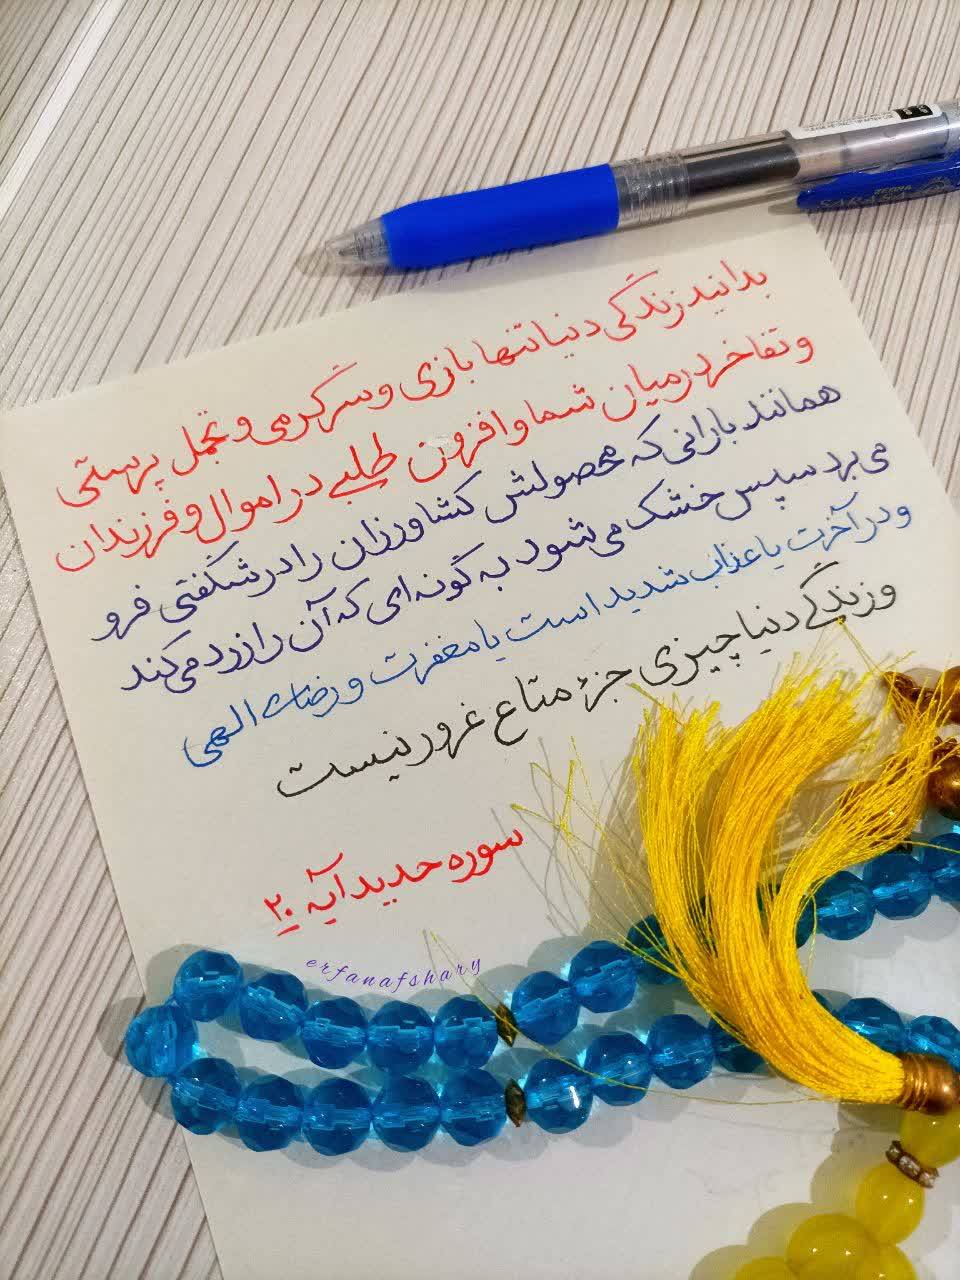 بدانید زندگی دنیا تنها بازی و سرگرمی و تجمل پرستی
و تفاخر در میان شما و افزون طلبی در اموال و فرزندان
همانند بارانی که محصولش کشاورزان را در شگفتی فرو
می برد سپس خشک می شود به گونه ای که آن را زرد می کند
و در آخرت یا عذاب شدید است یا مغفرت و رضای الهی
و زندگی دنیا چیزی جز متاع غرور نیست
سوره حدید آیه ۲۰
erfanafshary
ZEBRA
SARASA